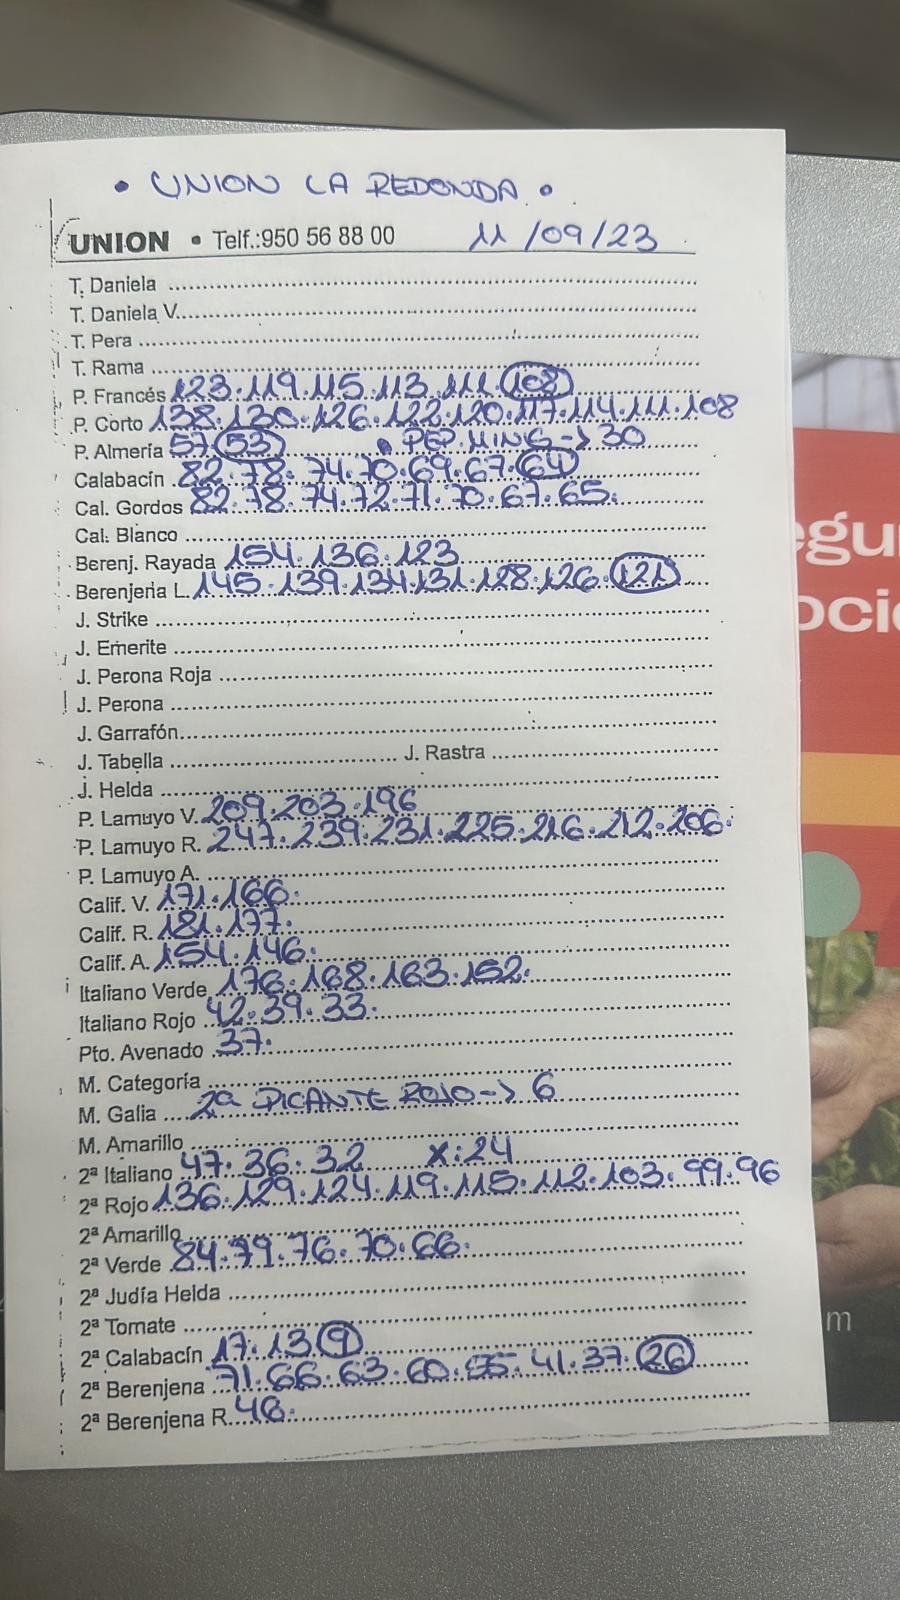 • UNION LA REDONDA •
UNION • Telf.:950 56 88 00 11/09/23
T. Daniela
T. Daniela V.
T. Pera
T. Rama
P. Francés 123.119.115.113.111.108
P. Corto 138.130.126.122.120.117.114.111.108
P. Almería 57.53 • PEP. MING -> 30
Calabacín 82.78.74.70.69.67.64
Cal. Gordos 82.78.74.72.71.70.67.65.
Cal. Blanco
Berenj. Rayada 154.136.123
Berenjena L. 145.139.134.131.128.126.121
J. Strike
J. Emerite
J. Perona Roja
J. Perona
J. Garrafón
J. Tabella J. Rastra
J. Helda
P. Lamuyo V. 209.203.196
P. Lamuyo R. 247.239.231.225.216.212.206.
P. Lamuyo A.
Calif. V. 171.166.
Calif. R. 181.177.
Calif. A. 154.146.
Italiano Verde 176.168.163.152.
Italiano Rojo 42.39.33.
Pto. Avenado 37.
M. Categoría
M. Galia 2ª PICANTE ROJO -> 6
M. Amarillo
2ª Italiano 47.36.32 X:24
2ª Rojo 136.129.124.119.115.112.103.99.96
2ª Amarillo
2ª Verde 84.79.76.70.66.
2ª Judía Helda
2ª Tomate
2ª Calabacín 17.13.9
2ª Berenjena 71.66.63.60.55.41.37.26
2ª Berenjena R. 46.
egu
ocio
m